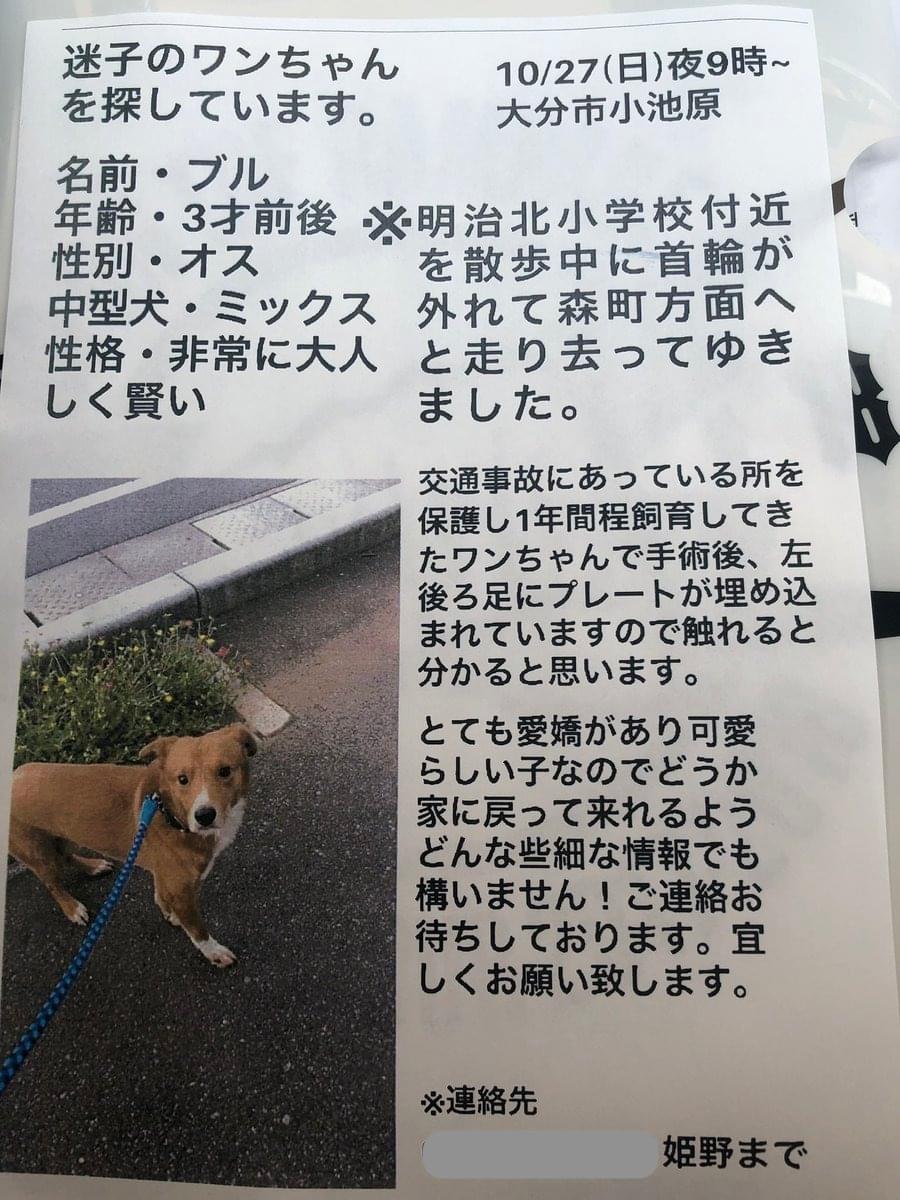 迷子のワンちゃん
を探しています。
10/27(日)夜9時~
大分市小池原
名前・ブル
年齢・3才前後
性別・オス
中型犬・ミックス
性格・非常に大人
しく賢い
※明治北小学校付近
を散歩中に首輪が
外れて森町方面へ
と走り去ってゆき
ました。
交通事故にあっている所を
保護し1年間程飼育してき
たワンちゃんで手術後、左
後ろ足にプレートが埋め込
まれていますので触れると
分かると思います。
とても愛嬌があり可愛
らしい子なのでどうか
家に戻って来れるよう
どんな些細な情報でも
構いません！ご連絡お
待ちしております。宜
しくお願い致します。
※連絡先
姫野まで